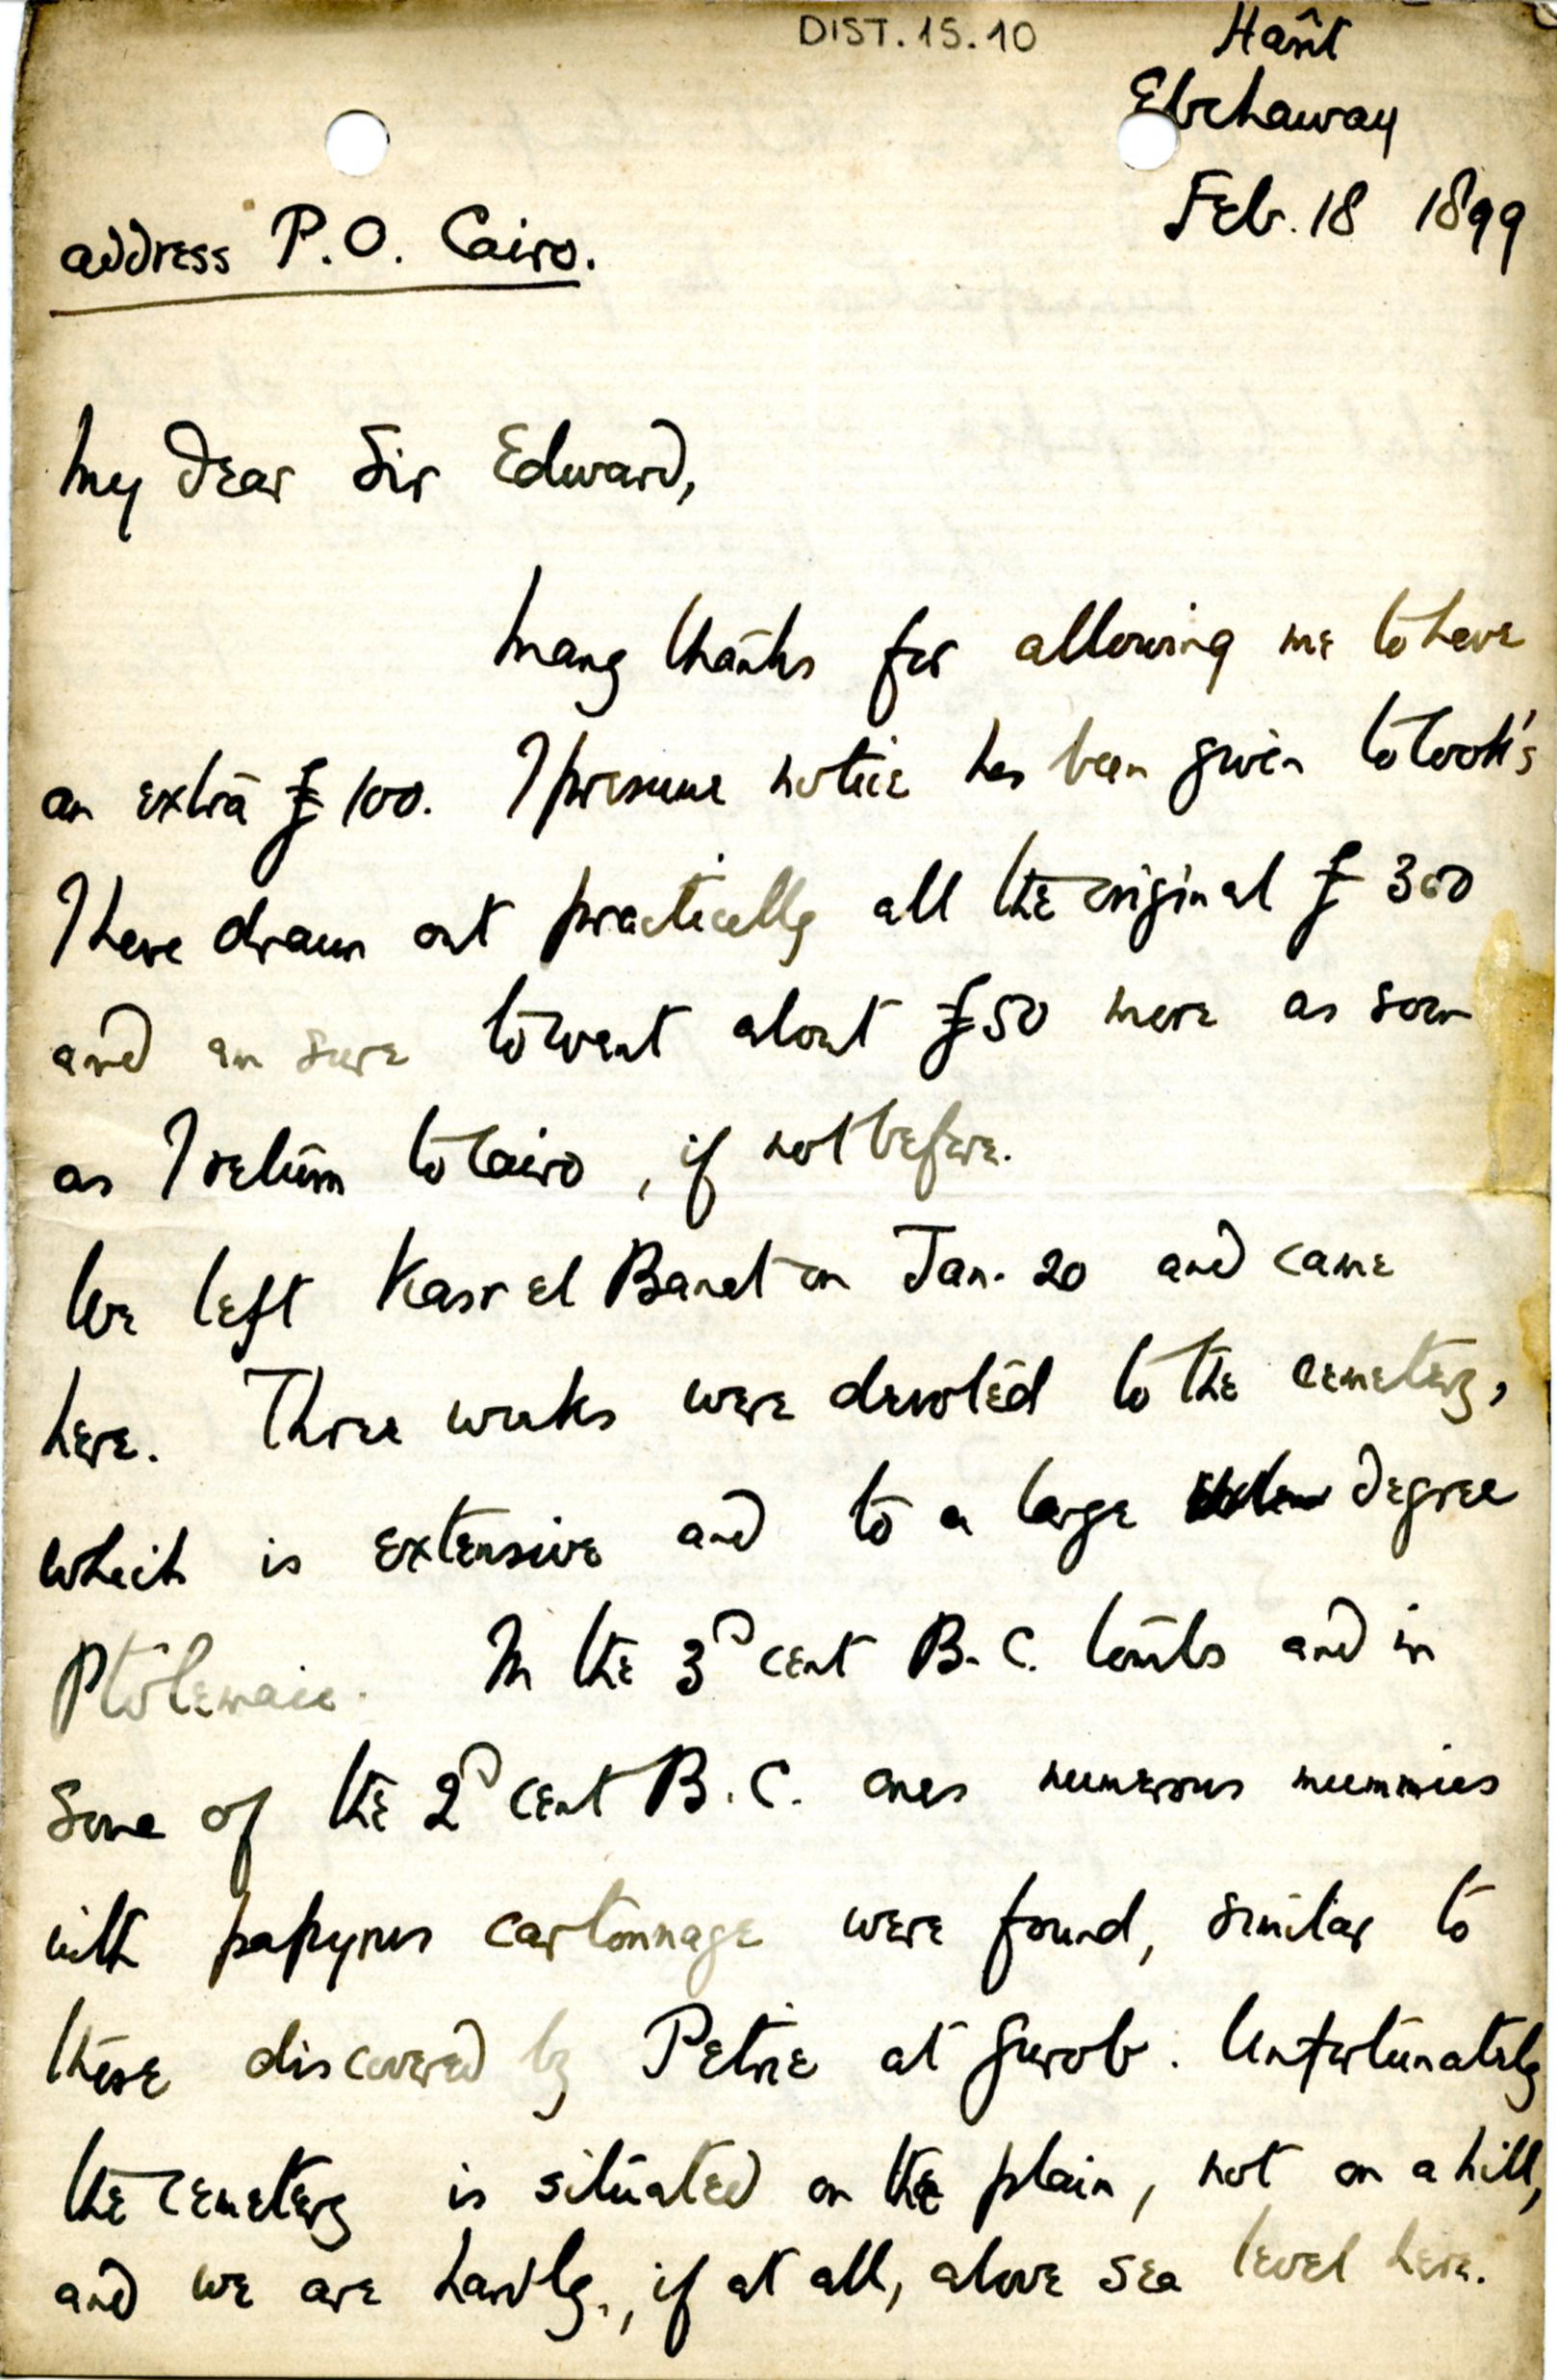 DIST. 15.10
Harît
Ebchaway
Feb. 18 1899
address P.O. Cairo.
My dear Sir Edward,
Many thanks for allowing me to have
an extra £100. I presume notice has been given to Cook's
I have drawn out practically all the original £300
and am sure to want about £50 more as soon
as I return to Cairo, if not before.
We left Kasr el Banat on Jan. 20 and came
here. Three weeks were devoted to the cemetery,
which is extensive and to a large degree
Ptolemaic. In the 3d cent B.C. tombs and in
some of the 2d cent B.C. ones numerous mummies
with papyrus cartonnage were found, similar to
those discovered by Petrie at Gurob. Unfortunately
the cemetery is situated on the plain, not on a hill,
and we are hardly, if at all, above sea level here.